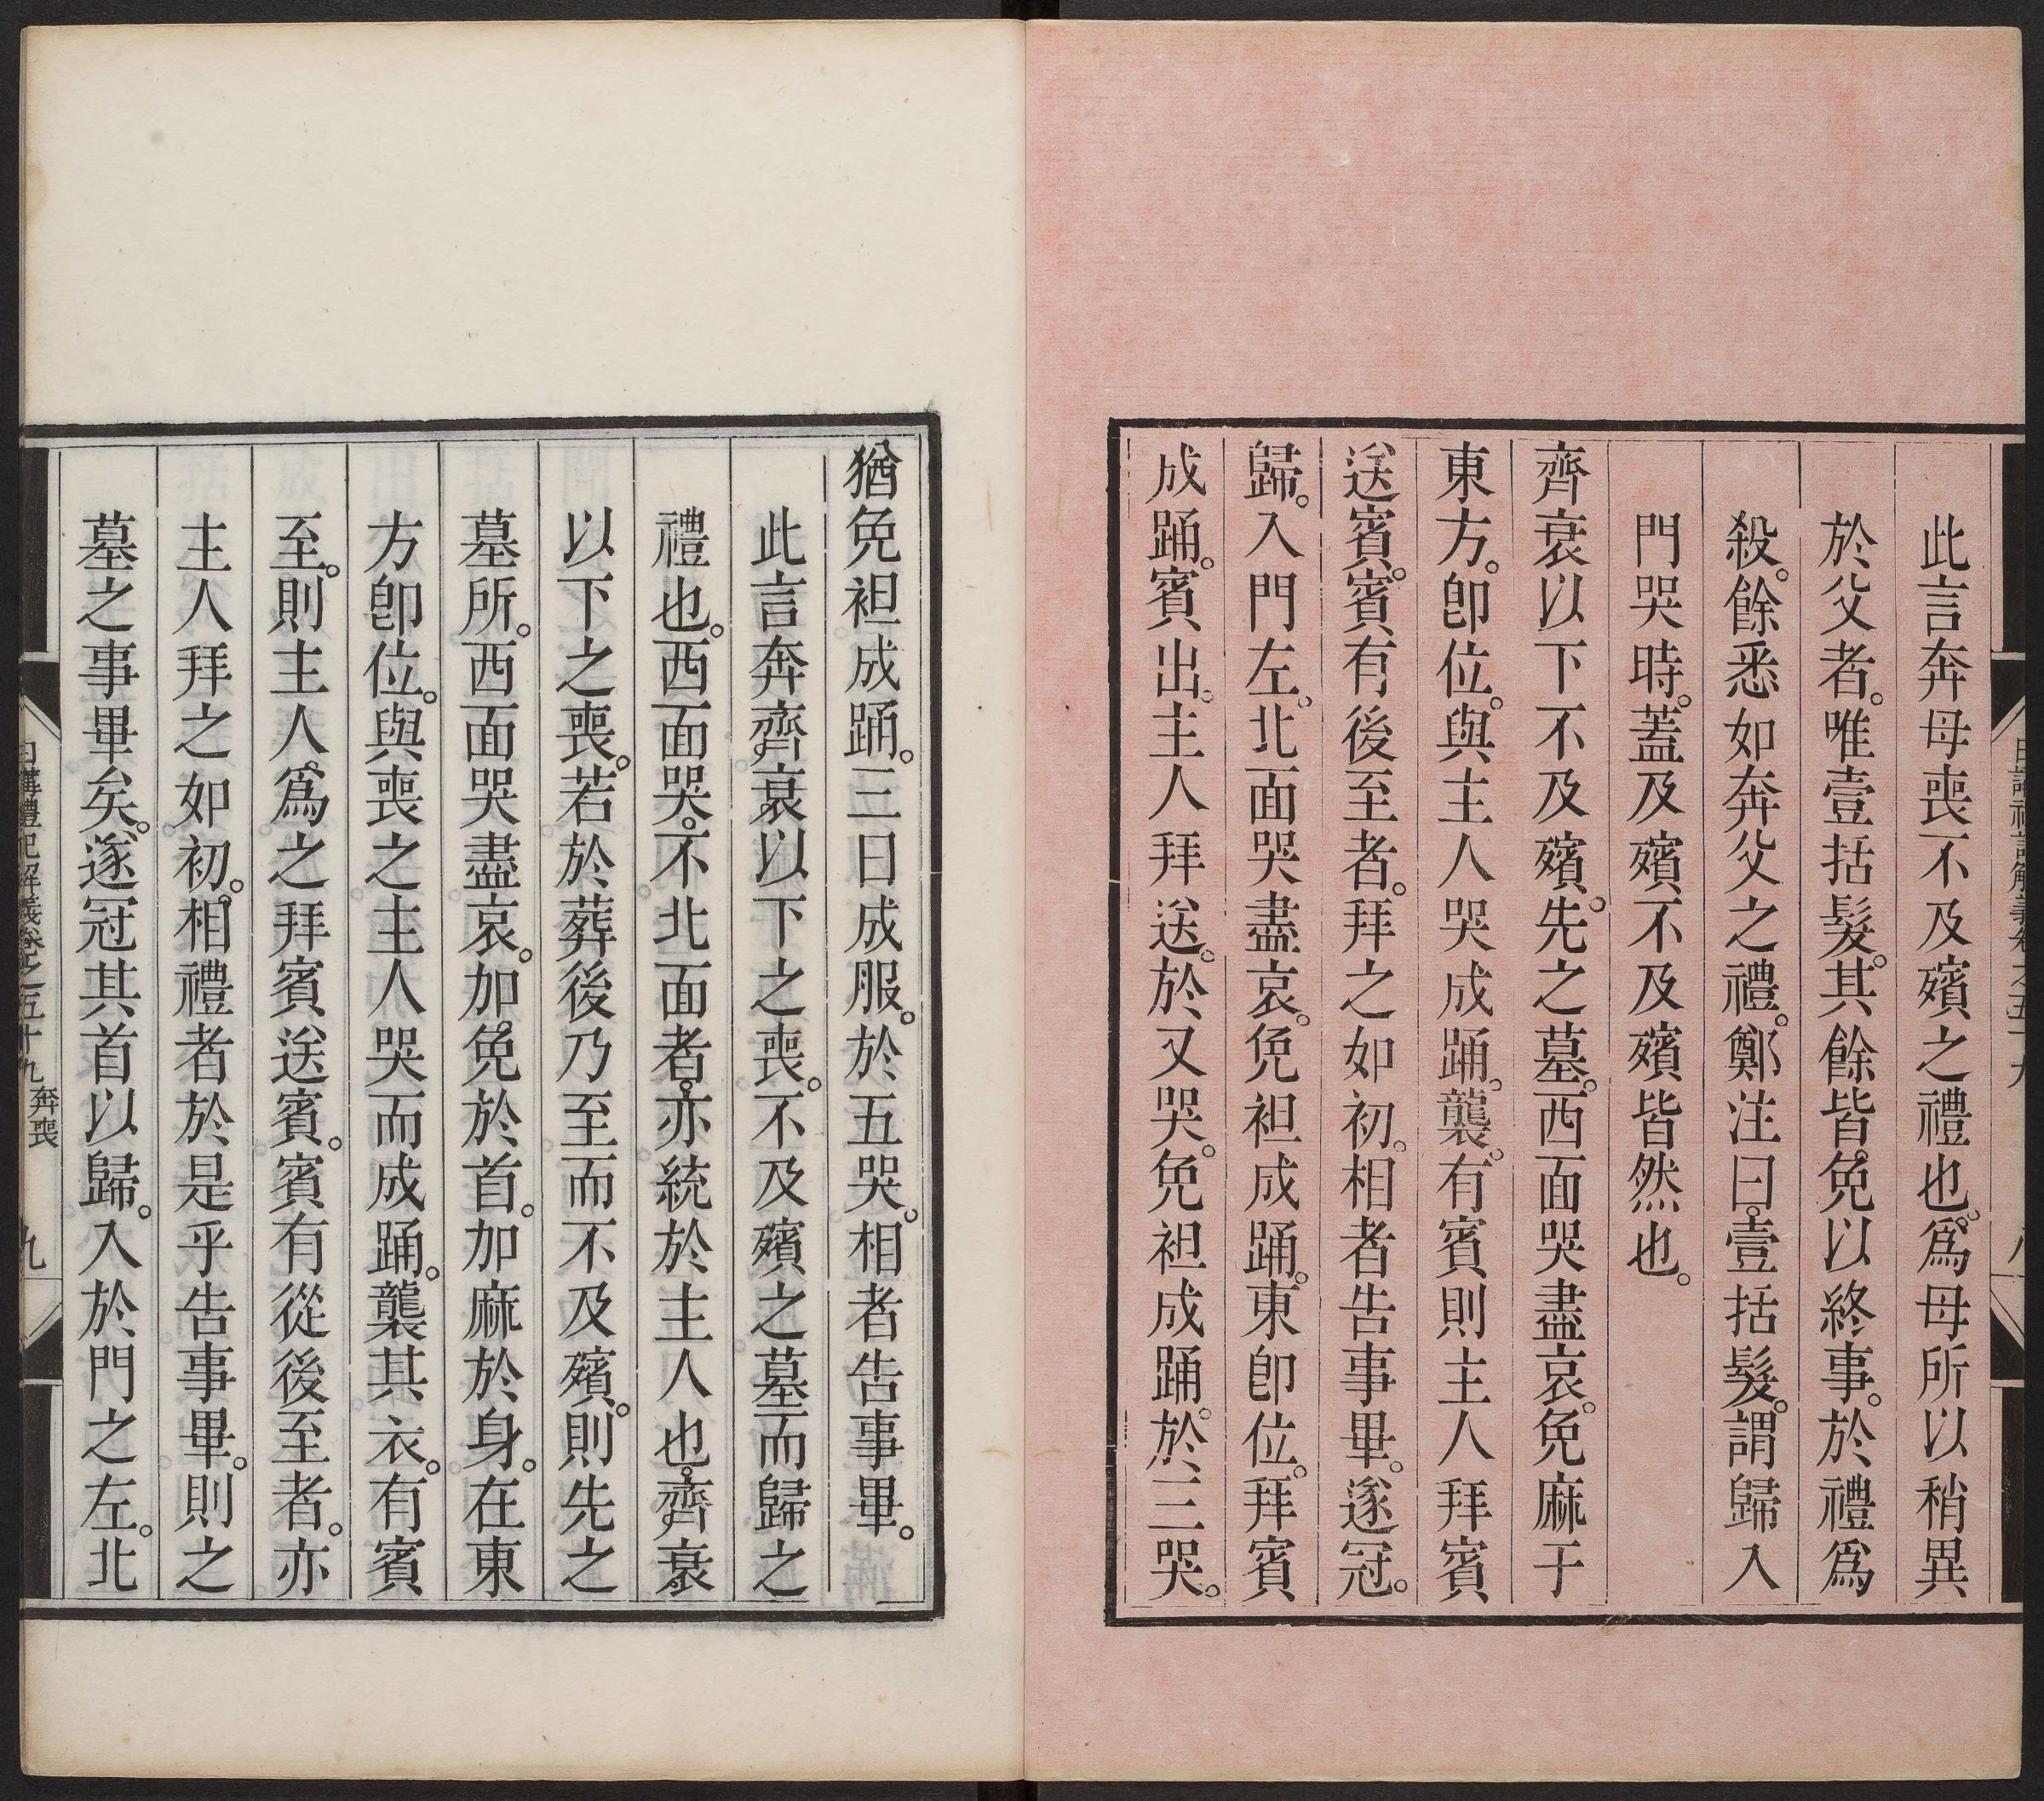 此言奔母喪不及殯之禮也。爲母所以稍異
於父者。唯壹括髮。其餘皆免以終事。於禮爲
殺。餘悉如奔父之禮。鄭注曰。壹括髮。謂歸入
門哭時。蓋及殯不及殯皆然也。
齊衰以下不及殯。先之墓。西面哭盡哀。免麻于
東方。卽位。與主人哭成踊。襲。有賓則主人拜賓
送賓。賓有後至者。拜之如初。相者告事畢。遂冠。
歸。入門左。北面哭盡哀。免袒成踊。東卽位。拜賓
成踊。賓出。主人拜送。於又哭。免袒成踊。於三哭。
猶免袒成踊。三日成服。於五哭。相者告事畢。
此言奔齊衰以下之喪。不及殯之墓而歸之
禮也。西面哭。不北面者。亦統於主人也。齊衰
以下之喪。若於葬後乃至而不及殯。則先之
墓所。西面哭盡哀。加免於首。加麻於身。在東
方卽位。與喪之主人哭而成踊。襲其衣。有賓
至。則主人爲之拜賓送賓。賓有從後至者。亦
主人拜之如初。相禮者於是乎告事畢。則之
墓之事畢矣。遂冠其首以歸。入於門之左。北
日講禮記解義卷之五十九 奔喪 九